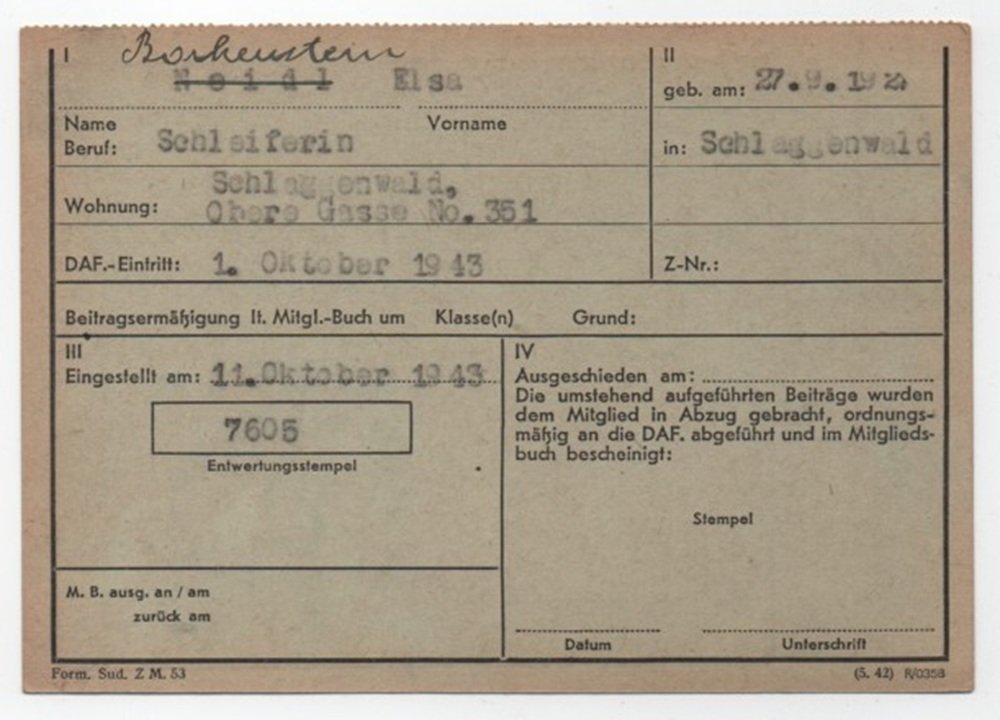 I Borkenstein II
Neidl Elsa geb. am: 27.9.192
Name Vorname
Beruf: Schleiferin in: Schlaggenwald
Schlaggenwald,
Wohnung: Obere Gasse No. 351
DAF.-Eintritt: 1. Oktober 1943 Z-Nr.:
Beitragsermäßigung lt. Mitgl.-Buch um Klasse(n) Grund:
III IV
Eingestellt am: 11.Oktober 1943 Ausgeschieden am:
Die umstehend aufgeführten Beiträge wurden
dem Mitglied in Abzug gebracht, ordnungs-
mäßig an die DAF. abgeführt und im Mitglieds-
buch bescheinigt:
7605
Entwertungsstempel
Stempel
M. B. ausg. an / am
zurück am
Datum Unterschrift
Form. Sud. Z M. 53 (5. 42) R/0358